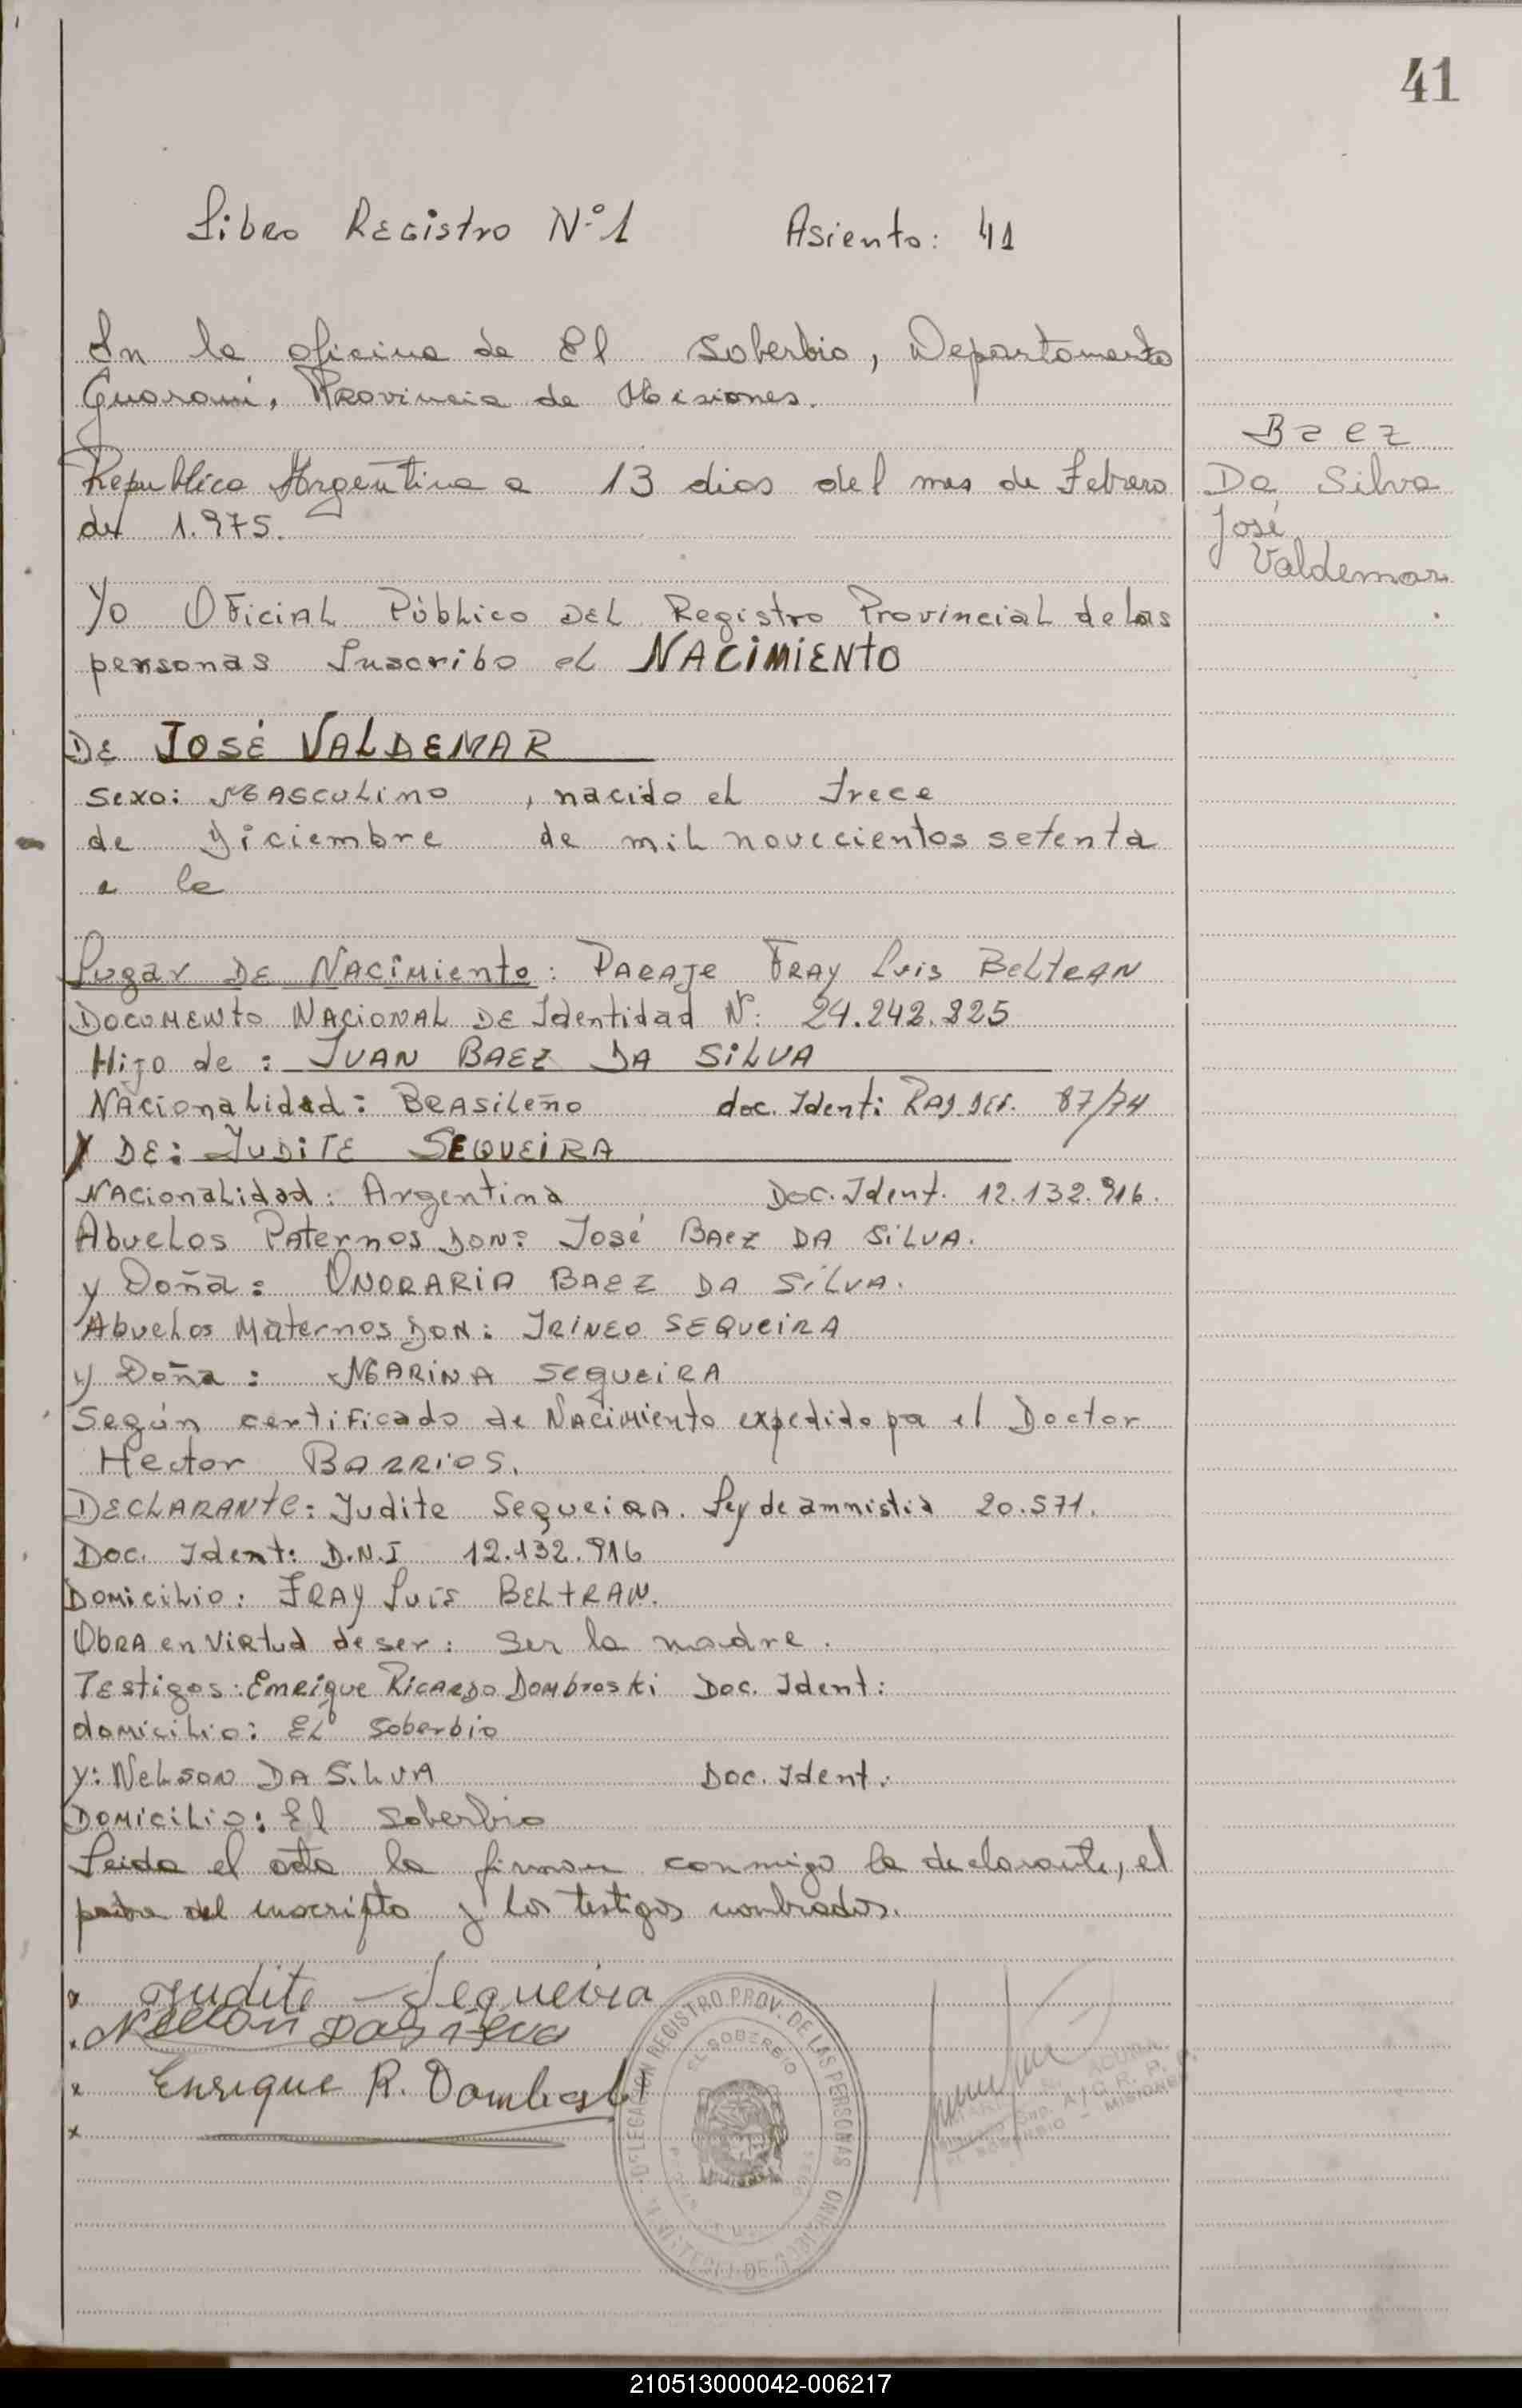 41
Libro Registro Nº 1 Asiento: 41
En la oficina de El Soberbio, Departamento
Guaraní, Provincia de Misiones.
Baez
Republica Argentina a 13 dias del mes de Febrero
Da Silva
de 1.975.
José
Valdemar.
Yo Oficial Público del Registro Provincial de las
personas Inscribo el NACIMIENTO
DE JOSÉ VALDEMAR
Sexo: Masculino, nacido el Trece
de Diciembre de mil novecientos setenta
a la
Lugar de Nacimiento: Paraje Fray Luis Beltran
Documento Nacional de Identidad Nº: 24.242.825
Hijo de: JUAN BAEZ DA SILVA
Nacionalidad: Brasileño doc. Ident: 87/74
Y DE: JUDITE SEQUEIRA
Nacionalidad: Argentina Doc. Ident. 12.132.916.
Abuelos Paternos Don: José Baez DA SILVA.
y Doña: ONORARIA BAEZ DA SILVA.
Abuelos Maternos Don: IRINEO SEQUEIRA
y Doña: MARINA SEQUEIRA
Según certificado de Nacimiento expedido por el Doctor
Hector BARRIOS.
DECLARANTE: Judite Sequeira. Ley de amnistia 20.571.
Doc. Ident: D.N.I 12.132.916
Domicilio: FRAY Luis BELTRAN.
Obra en virtud de ser: Ser la madre.
Testigos: Enrique Ricardo Dombroski Doc. Ident:
domicilio: El Soberbio
y: Nelson DA SILVA Doc. Ident.
Domicilio: El Soberbio
Leida el acta la firman conmigo la declarante, el
padre del inscripto y los testigos nombrados.
x Judite Sequeira
x Nelson Da Silva
x Enrique R. Dombroski
x
DELEGACION REGISTRO PROV. DE LAS PERSONAS
EL SOBERBIO
EL SOBERBIO - MISIONES
210513000042-006217